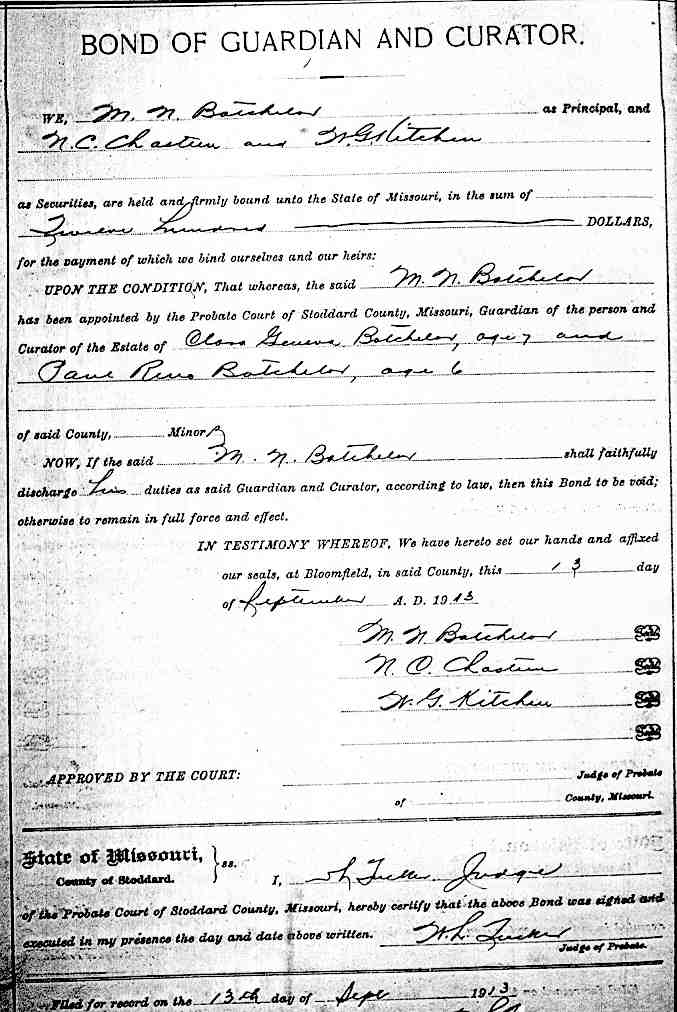 BOND OF GUARDIAN AND CURATOR.
WE, M. N. Batchelor as Principal, and
N. C. Chasteen and W G Kitchen
as Securities, are held and firmly bound unto the State of Missouri, in the sum of
Twelve hundred DOLLARS,
for the payment of which we bind ourselves and our heirs:
UPON THE CONDITION, That whereas, the said M. N. Batchelor
has been appointed by the Probate Court of Stoddard County, Missouri, Guardian of the person and
Curator of the Estate of Clara Geneva Batchelor, age 7 and
Reno Batchelor, age 6
of said County, Minors
NOW, If the said M. N. Batchelor shall faithfully
discharge his duties as said Guardian and Curator, according to law, then this Bond to be void;
otherwise to remain in full force and effect.
IN TESTIMONY WHEREOF, We have hereto set our hands and affixed
our seals, at Bloomfield, in said County, this 13 day
of September A. D. 1913
M. N. Batchelor Seal
N. C. Chasteen Seal
W. G. Kitchen Seal
Seal
APPROVED BY THE COURT: Judge of Probate
of County, Missouri.
State of Missouri, } ss.
County of Stoddard. I, W L Tucker Judge
of the Probate Court of Stoddard County, Missouri, hereby certify that the above Bond was signed and
executed in my presence the day and date above written. W. L. Tucker
Judge of Probate.
Filed for record on the 13th day of Sept 1913